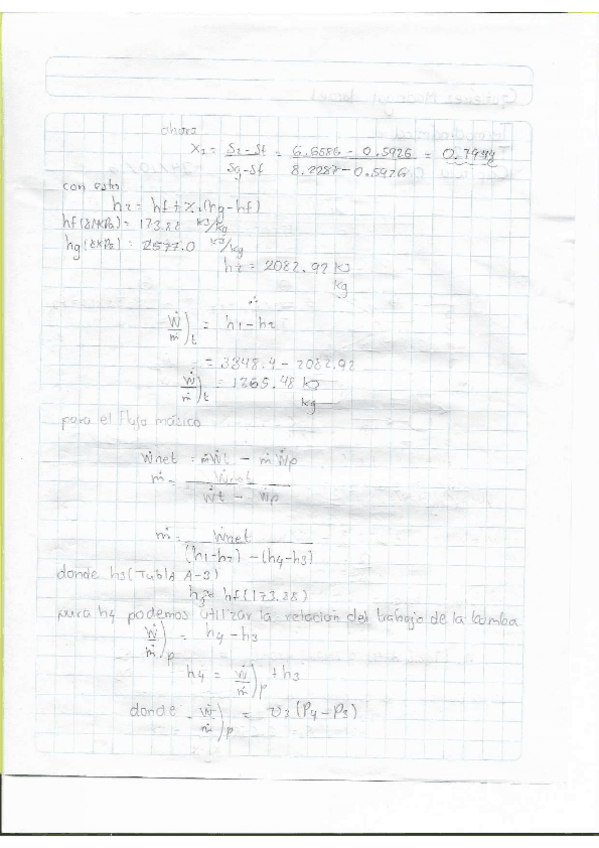 ahora
X₂ = S₂ - Sf / Sg - Sf = 6.6586 - 0.5926 / 8.2287 - 0.5926 = 0.7944
con esto
h₂ = hf + X₂(hg - hf)
hf(8MPa) = 173.88 kJ/kg
hg(8MPa) = 2577.0 kJ/kg
h₂ = 2082.92 kJ/kg
∴
Ẇ/ṁ)t = h1 - h2
= 3348.4 - 2082.92
Ẇ/ṁ)t = 1265.48 kJ/kg
para el flujo másico
Ẇnet = ṁẆt - ṁẆp
ṁ = Ẇnet / Ẇt - Ẇp
ṁ = Ẇnet / (h1-h2) - (h4-h3)
donde h3 (Tabla A-3)
h3 = hf (173.88)
para h4 podemos utilizar la relacion del trabajo de la bomba
Ẇ/ṁ)p = h4 - h3
h4 = Ẇ/ṁ)p + h3
donde Ẇ/ṁ)p = υ3 (P4 - P3)